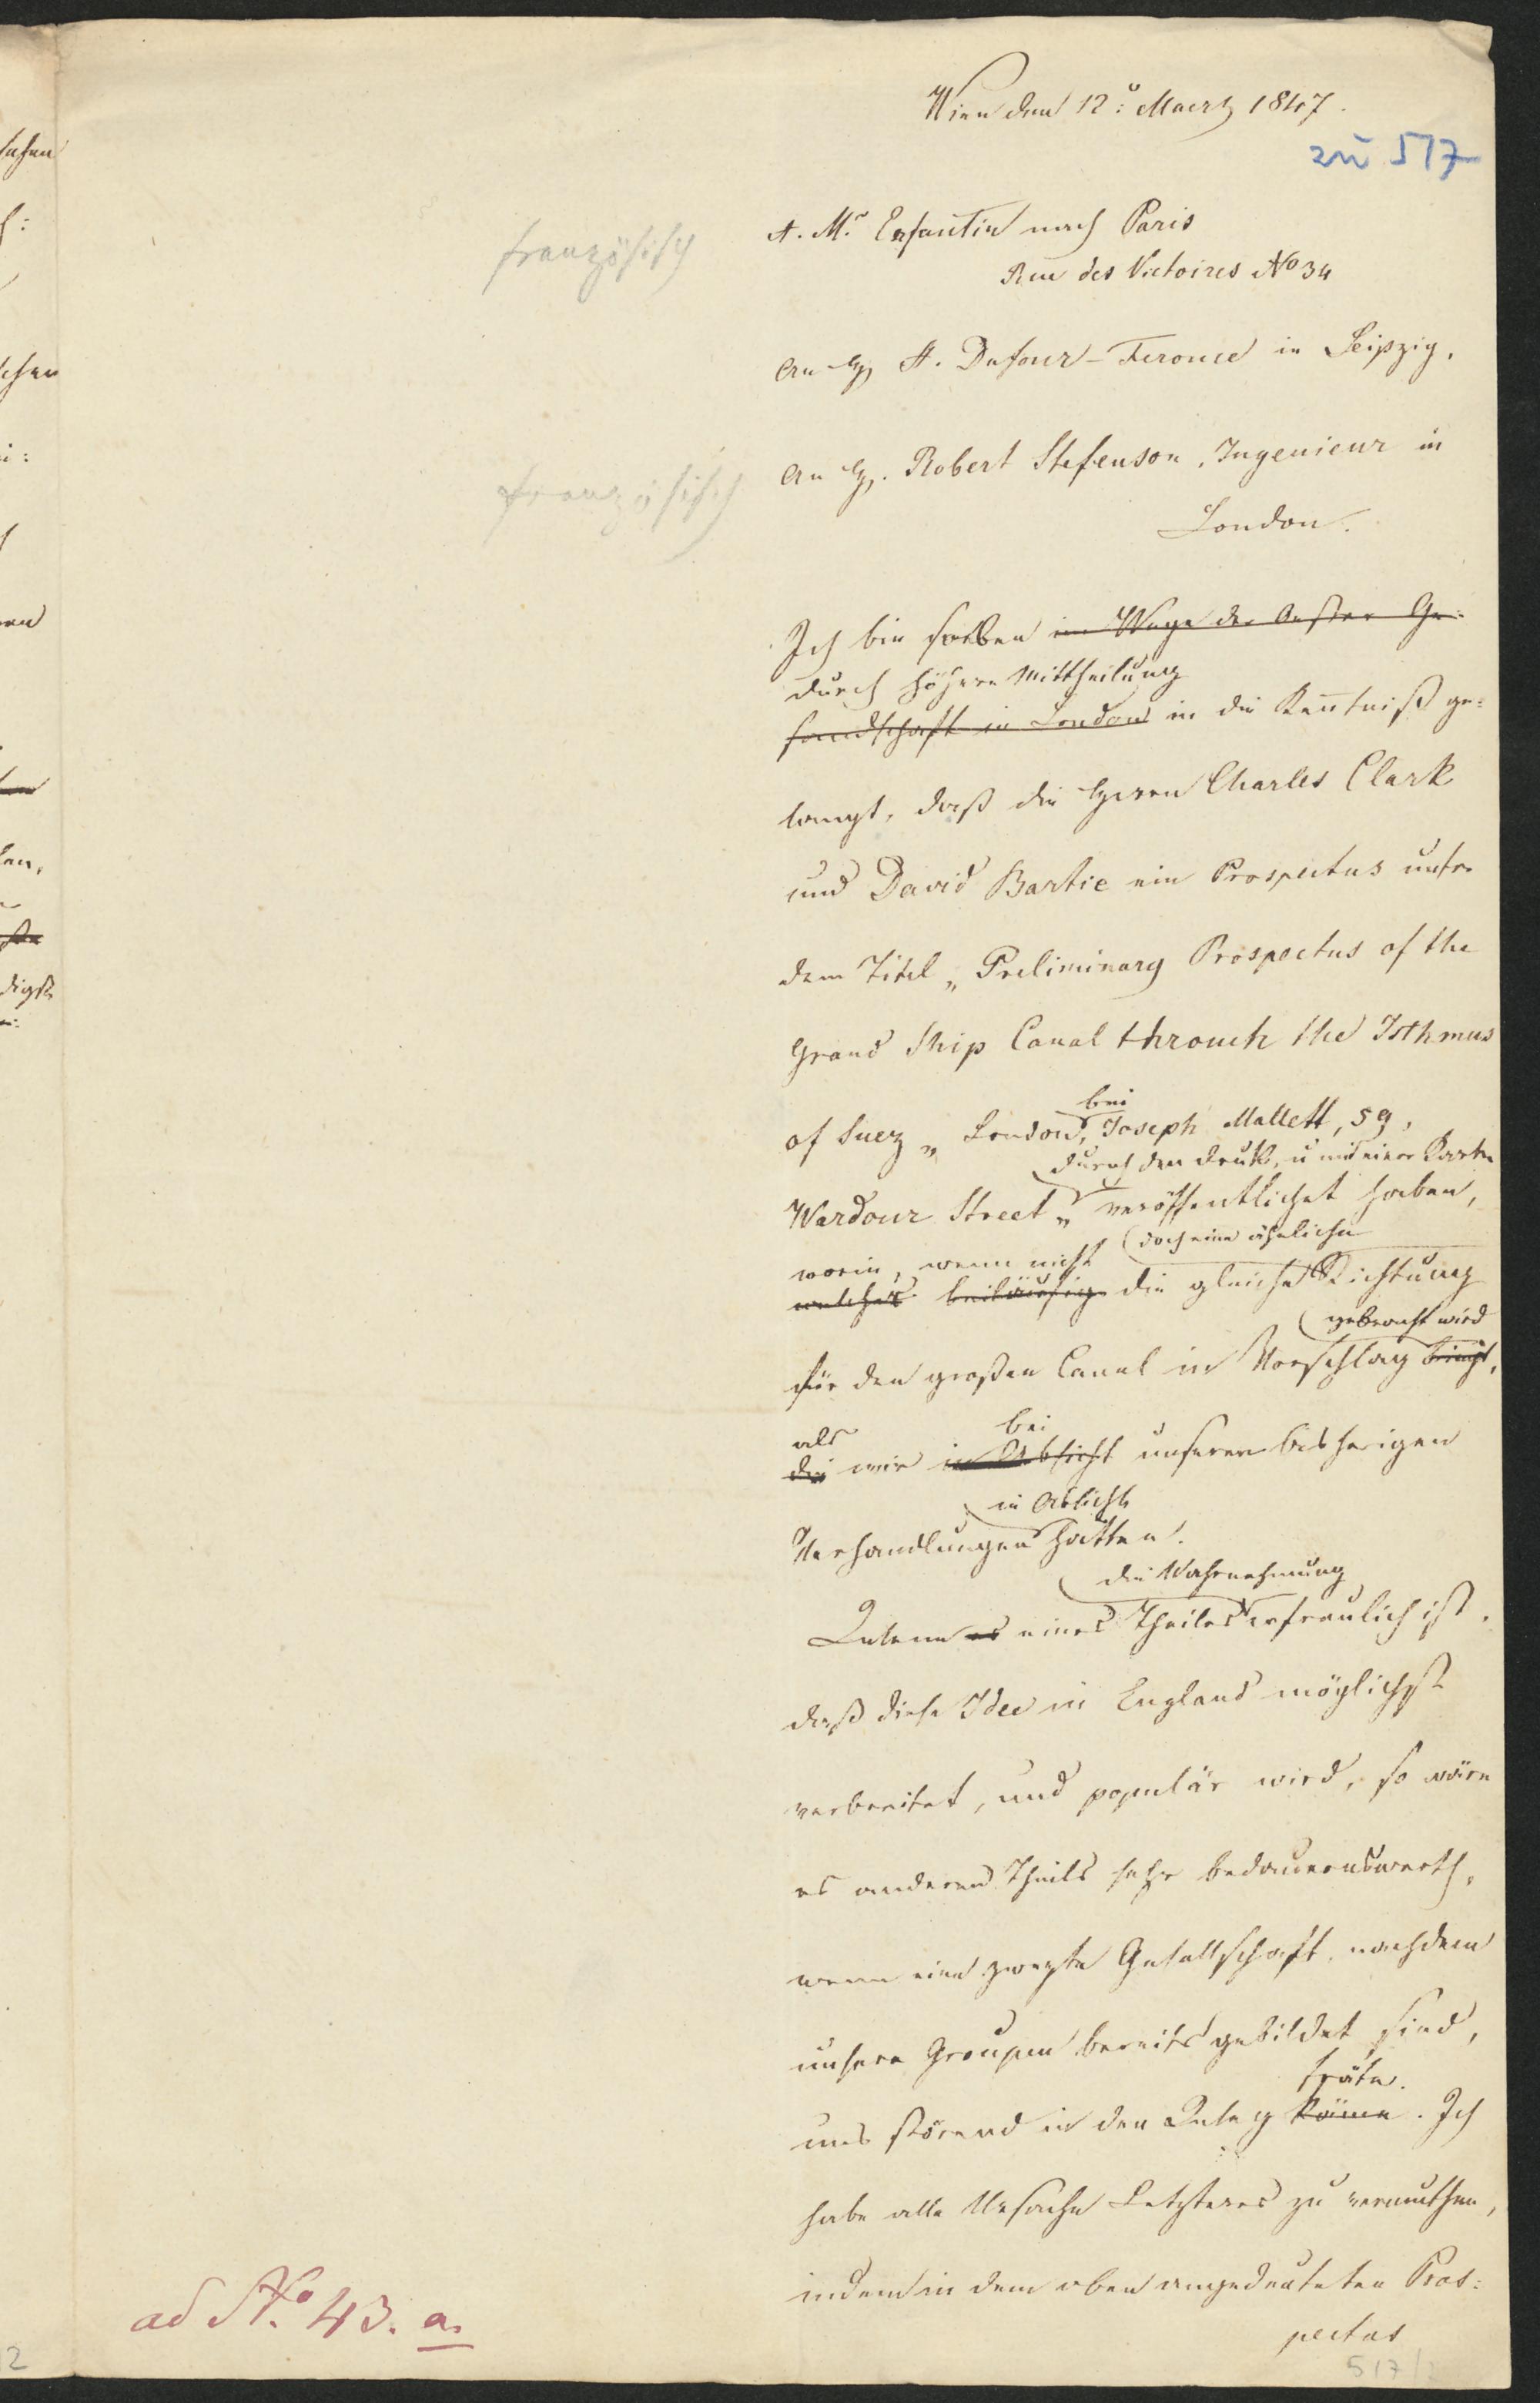 Wien den 12: Maerz 1847.
zu 517
französisch
A. Mr Enfantin nach Paris
Rue des Victoires No 34
An H. A. Dufour-Feronce in Leipzig.
französisch
An H. Robert Stefenson, Ingenieur in
London.
Ich bin soeben im Wege der Oester Ge-
durch höhere Mittheilung
sandschaft in London in die Kenntniß ge-
langt, daß die Herren Charles Clark
und David Bartie ein Prospectus unter
dem Titel „Preliminary Prospectus of the
Grand Ship Canal throuch the Isthmus
bei
of Suez „ London, Joseph Mallett, 59,
durch den Druk, u mit einer Karte
Wardour Street „ veröffentlichet haben,
worin, wenn nicht doch eine ähnliche
welches beiläufig die gleiche Richtung
gebracht wird
für den großen Canal in Vorschlag bringt,
als bei
die wir in Absicht unseren bisherigen
in Absicht
Verhandlungen hatten.
die Wahrnehmung
Indem es eines Theiles erfreulich ist,
daß diese Idee in England möglichst
verbreitet, und populär wird, so wäre
es anderen Theils sehr bedauernswerth,
wenn eine zweyte Gesellschaft, nachdem
unsere Groupen bereits gebildet sind,
träte.
uns störend in den Anlag käme. Ich
habe alle Ursache Letzteres zu vermuthen,
indem in dem oben angedeuteten Pros-
pectus
ad No. 43. a.
517/2
2